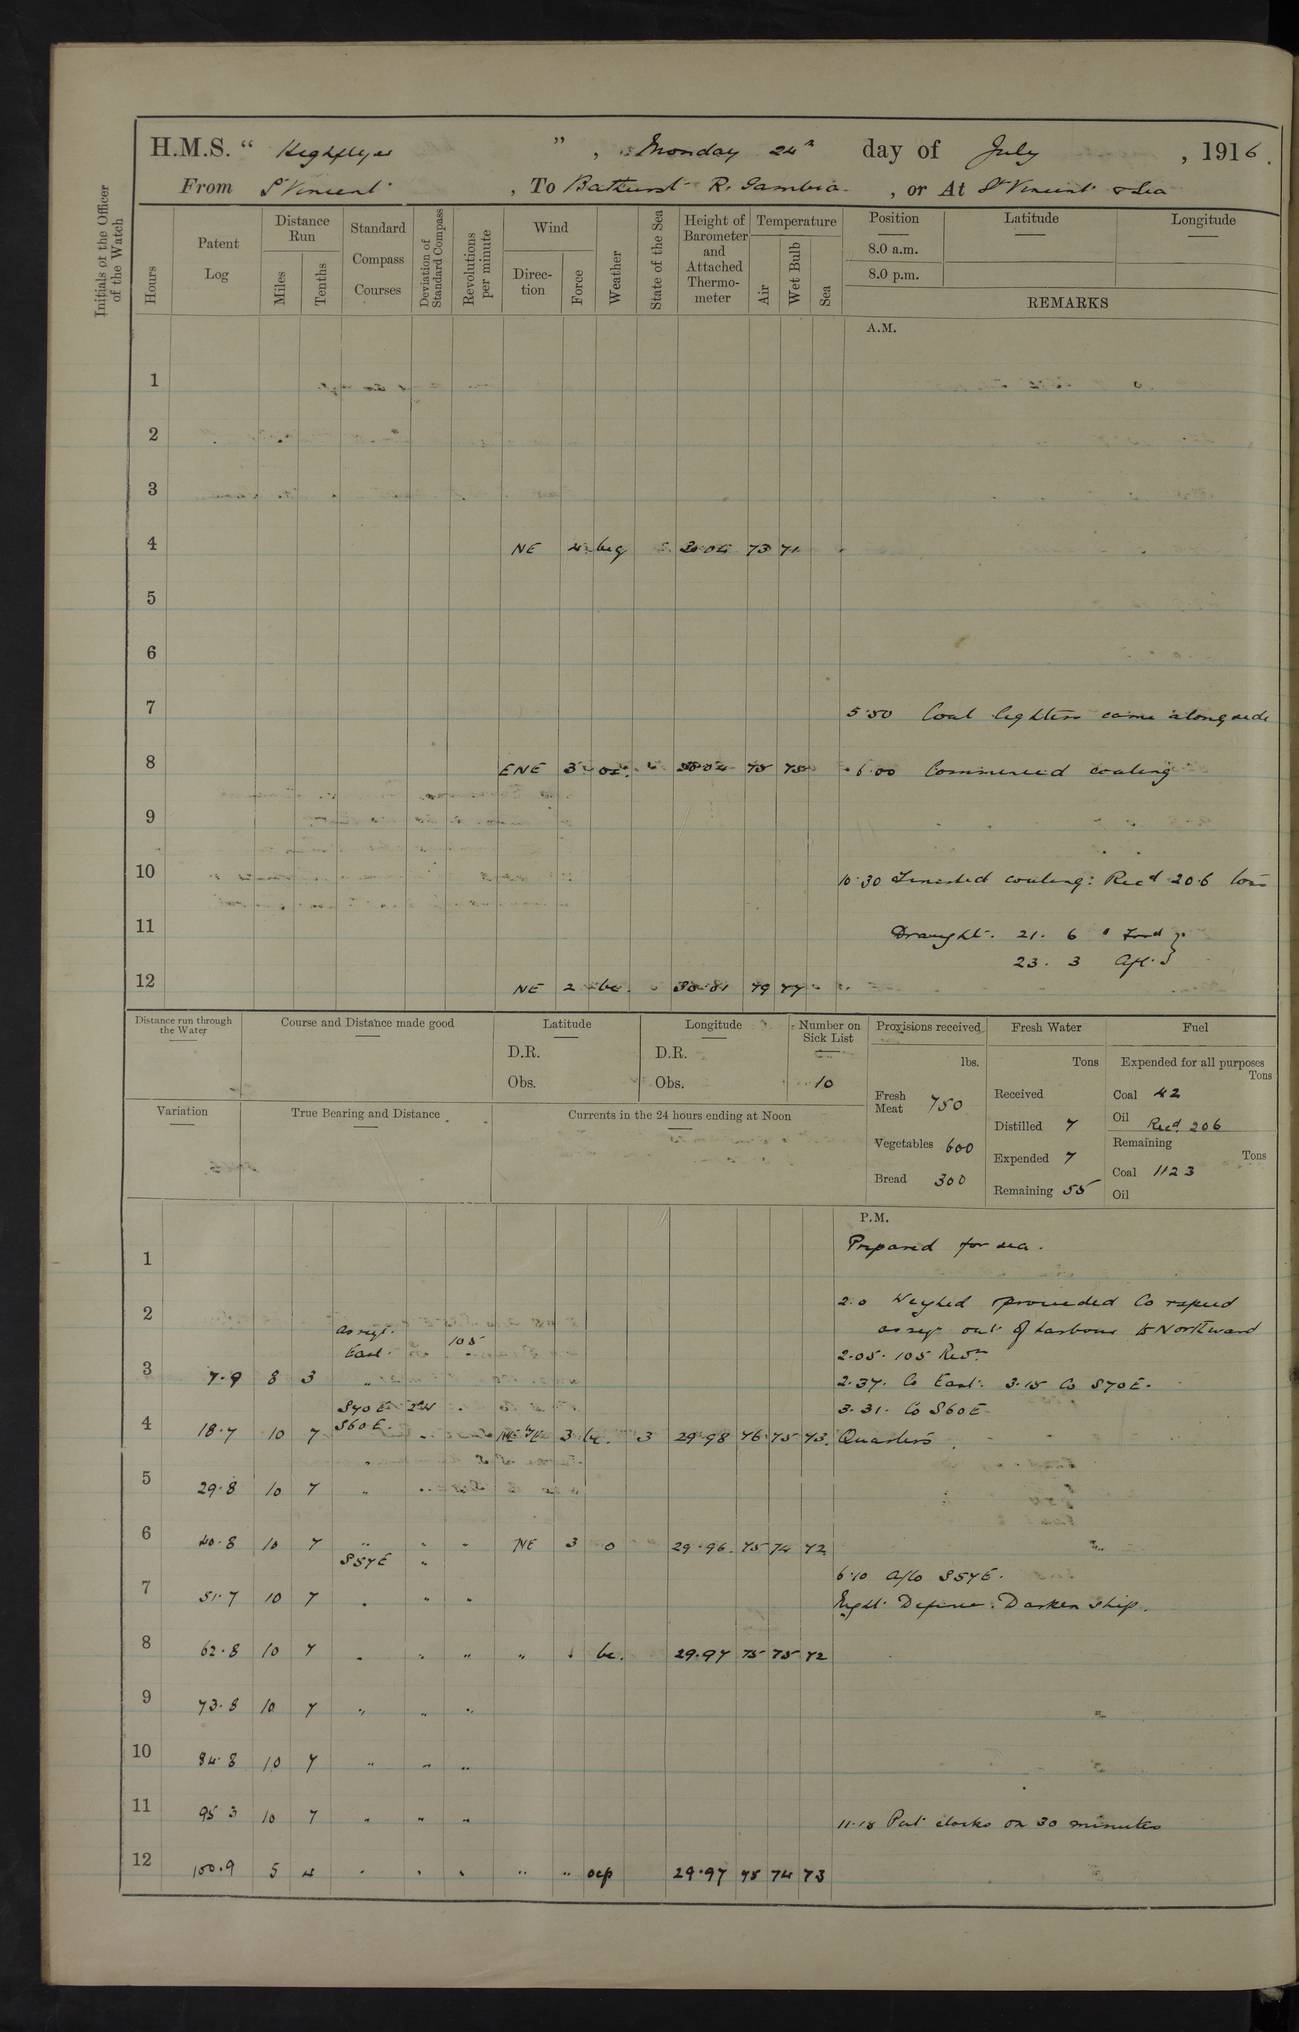 H.M.S. " Highflyer ", Monday 24th day of July, 1916.
From St Vincent, To Bathurst R. Gambia, or At St Vincent & Sea
Initials of the Officer of the Watch
Hours Patent Log Distance Run Miles Tenths Standard Compass Courses Deviation of Standard Compass Revolutions per minute Wind Direction Force Weather State of the Sea Height of Barometer and Attached Thermometer Temperature Air Wet Bulb Sea Position 8.0 a.m. 8.0 p.m. Latitude Longitude
REMARKS
A.M.
1
2
3
4 NE 4 bcq 30.04 73 71
5
6
7 5.50 Coal lighters came alongside
8 ENE 3 30.04 75 73 6.00 Commenced coaling
9
10 10.30 Finished coaling: Recd 206 tons
11 Draught. 21. 6 Ford
23. 3 Aft.
12 NE 2 bc. 79 77
Distance run through the Water Course and Distance made good Latitude Longitude Number on Sick List Provisions received Fresh Water Fuel
D.R. D.R. lbs. Tons Expended for all purposes Tons
Obs. Obs. 10
Fresh Meat 750 Received Coal 42
Variation True Bearing and Distance Currents in the 24 hours ending at Noon
Distilled 7 Oil Recd. 206
Vegetables 600 Expended 7 Remaining Tons
Bread 300 Remaining 55 Coal 1123
Oil
P.M.
Prepared for sea.
1
2.0 Weighed proceeded Co & speed
2 as req. out of harbour to Northward
as req. 105
East. 2.05. 105 Revs
3 7.9 8 3 " 2.37. Co East. 3.15 Co S70E.
S70E 3.31. Co S60E
4 18.7 10 7 S60E. " NE by E 3 bc. 3 29.98 76 75 73. Quarters.
5 29.8 10 7 " "
6 40.8 10 7 " " " NE 3 0 29.96. 75 74 72
S57E " 6.10 A/Co S57E.
7 51.7 10 7 " " " Night Defence. Darken ship.
8 62.8 10 7 " " " " " bc. 29.97 75 75 72
9 73.8 10 7 " " "
10 84.8 10 7 " " "
11 95.3 10 7 " " " 11.15 Put clocks on 30 minutes
12 100.9 5 4 " " " " " ocp 29.97 75 74 73